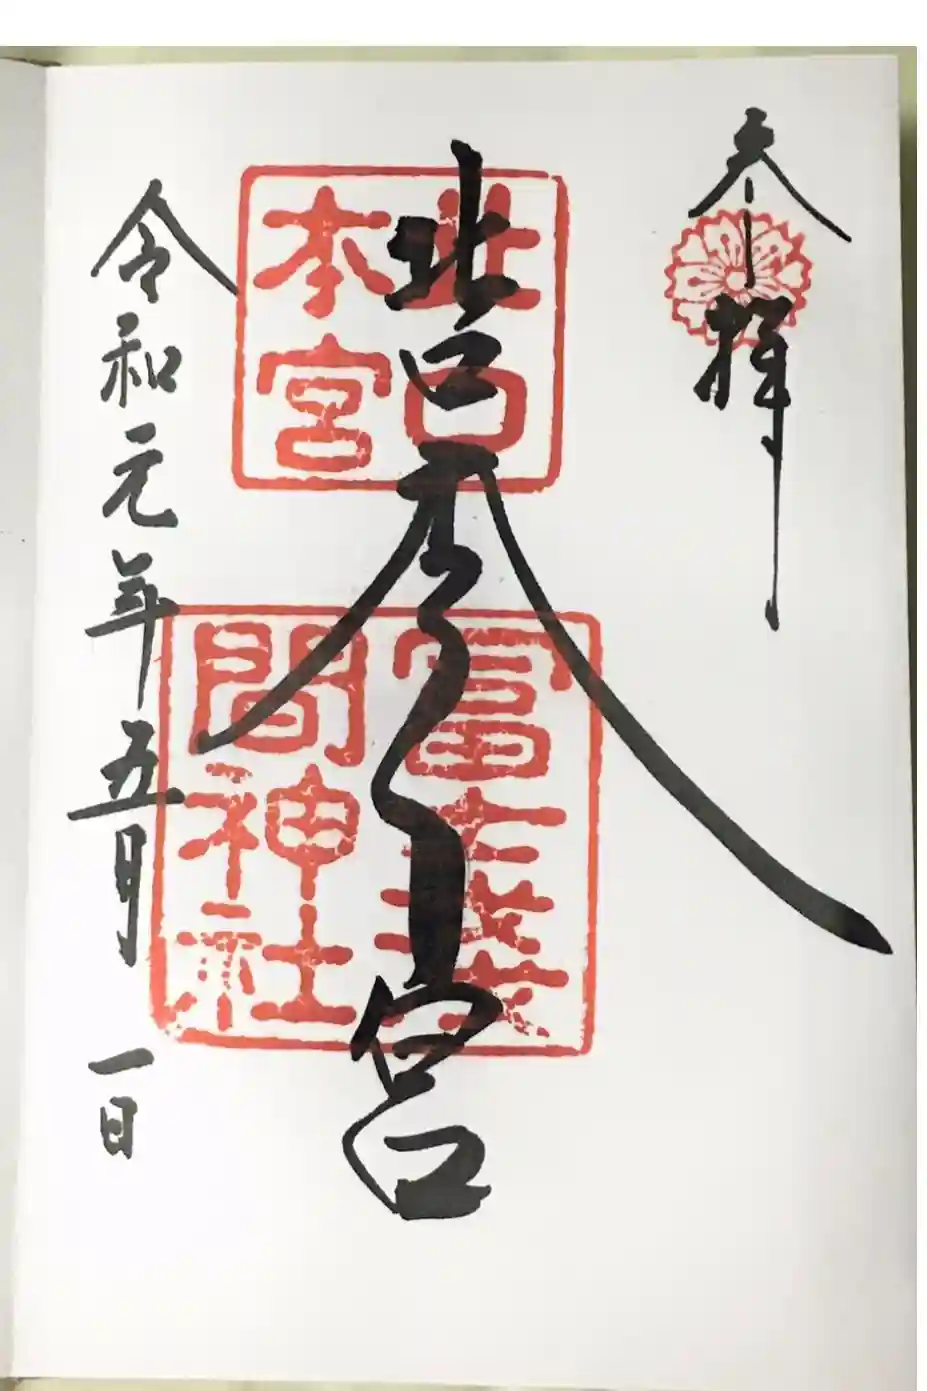 奉拝
北口本宮
北口本宮
冨士浅間神社
令和元年五月一日